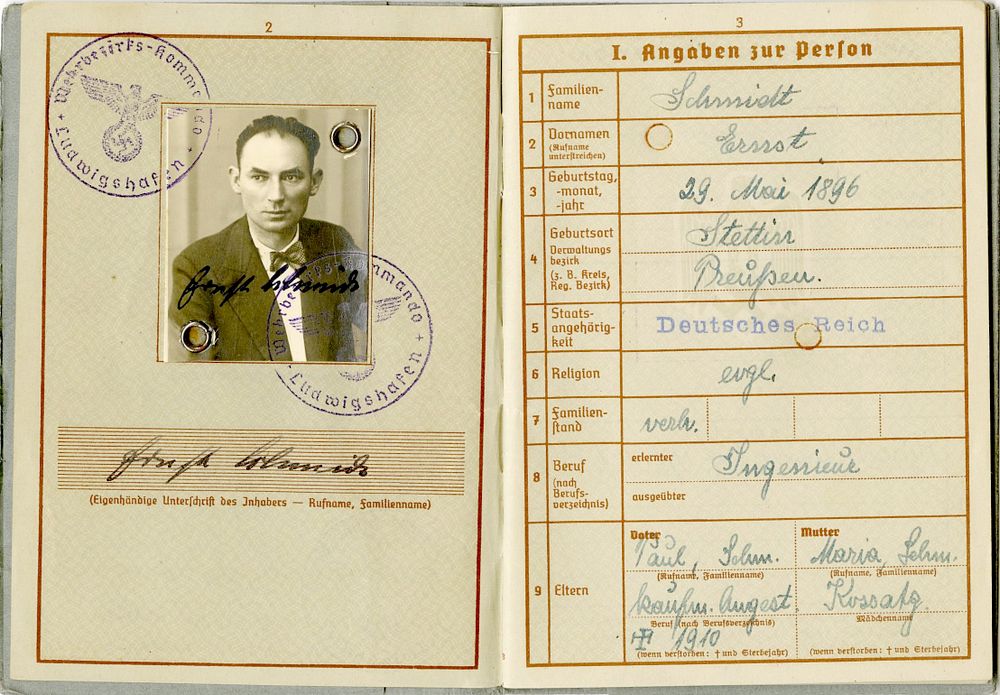 2
Wehrbezirks-Kommando
Ludwigshafen
Ernst Schmidt
Wehrbezirks-Kommando
Ludwigshafen
Ernst Schmidt
(Eigenhändige Unterschrift des Inhabers — Rufname, Familienname)
3
I. Angaben zur Person
1 Familien-
name
Schmidt
2 Vornamen
(Rufname
unterstreichen)
Ernst
3 Geburtstag,
-monat,
-jahr
29. Mai 1896
4 Geburtsort
Verwaltungs
bezirk
(z. B. Kreis,
Reg. Bezirk)
Stettin
Preußen.
5 Staats-
angehörig-
keit
Deutsches Reich
6 Religion
evgl.
7 Familien-
stand
verh.
8 Beruf
(nach
Berufs-
verzeichnis)
erlernter
Ingenieur
ausgeübter
9 Eltern
Vater
Paul, Schm.
(Rufname, Familienname)
kaufm. Angest.
Beruf (nach Berufsverzeichnis)
† 1910
(wenn verstorben: † und Sterbejahr)
Mutter
Maria, Schm.
(Rufname, Familienname)
Kossatz.
Mädchenname
(wenn verstorben: † und Sterbejahr)